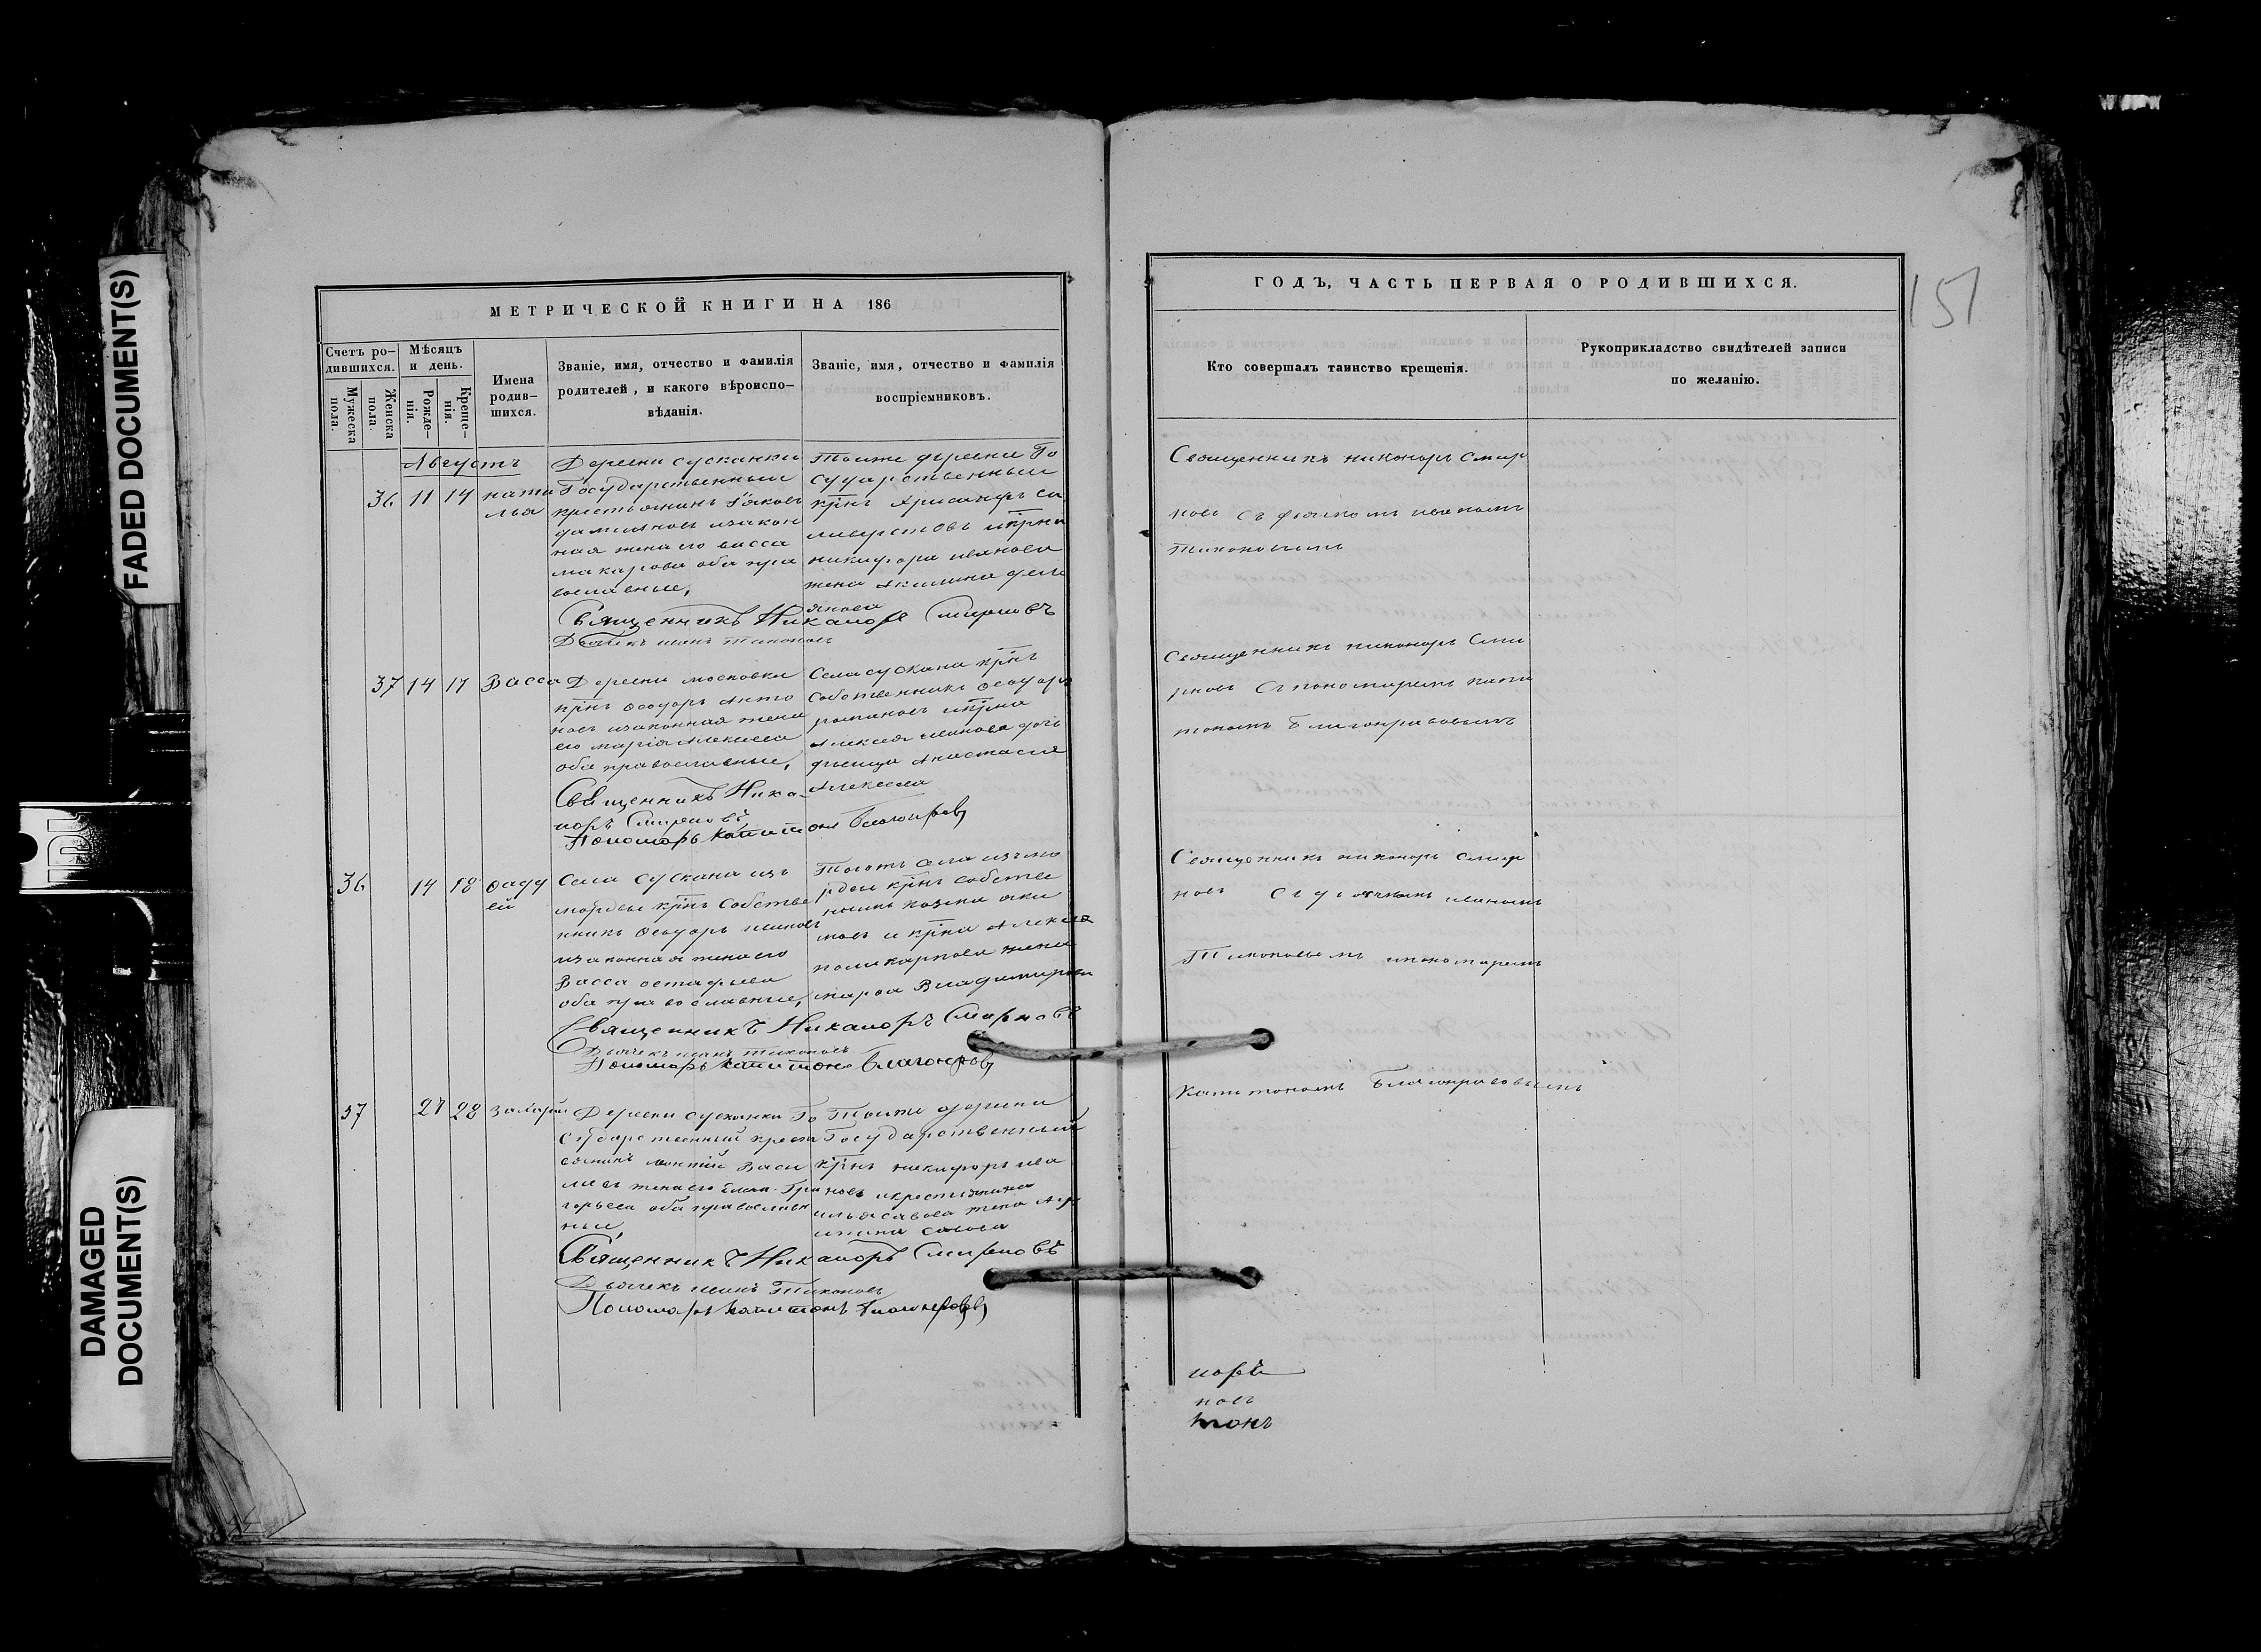 FADED DOCUMENT(S)
DAMAGED
DOCUMENT(S)
МЕТРИЧЕСКОЙ КНИГИ НА 186
Счетъ ро-
дившихся.
Мужеска
пола.
Женска
пола.
Мѣсяцъ
и день.
Рожде-
нія.
Креще-
нія.
Имена
родив-
шихся.
Званіе, имя, отчество и фамилія
родителей, и какого вѣроиспо-
вѣданія.
Званіе, имя, отчество и фамилія
воспріемниковъ.
Августъ
36 11 14 ната
лья
Деревни сусканки
Государственный
крестьянинъ Іаковъ
дамиановъ изакон
ная жена его васса
макарова оба пра
вославные,
Тоиже деревни Го
сударственный
крнъ Хрисанфъ си
ливерстовъ икрна
никифора иванова
жена Акилина демь
янова
Священникъ Никаноръ Смирновъ
Дьячекъ иванъ тихоновъ
37 14 17 Васса
Деревни московки
крнъ Ѳеодоръ Анто
новъ изаконная жена
его марія Алексеева
оба православные,
Села сускана крнъ
собственникъ Ѳеодоръ
романовъ икрна
Алексея иванова дочь
девица Анастасия
Алексеева
Священникъ Ника-
норъ Смирновъ
Пономарь Капитонъ Благонравовъ
36 14 18 Ѳадд
ей
Села сускана изъ
мордвы крнъ собстве
нникъ Ѳеодоръ ивановъ
изаконная жена его
Васса остафьева
оба православные,
Тогожъ села изъмо
рдвы крнъ собстве
нникъ козма аки
мовъ и крна Алексея
поликарпова жена
марѳа Владимирова
Священникъ Никаноръ Смирновъ
Дьячекъ иванъ тихоновъ
Пономарь Капитонъ Благонравовъ
37 27 28 Захарий
Деревни сусканки Го
сударственный крест
янинъ леонтий Васи
льевъ жена его Елена Гри
горьева оба православн
ные
Тоиже деревни
Государственный
крнъ никифоръ ива
новъ икрестьянина
ильи савова жена
савова
Священникъ Никаноръ Смирновъ
Дьячекъ иванъ Тихоновъ
Пономарь Капитонъ Благонравовъ
ГОДЪ, ЧАСТЬ ПЕРВАЯ О РОДИВШИХСЯ.
151
Кто совершалъ таинство крещенія.
Рукоприкладство свидѣтелей записи
по желанію.
Священникъ никаноръ Смир
новъ съ дьячкомъ иваномъ
Тихоновымъ
Священникъ никаноръ Сми
рновъ съ пономаремъ капи
тономъ Благонравовымъ
Священникъ никаноръ Смир
новъ съ дьячкомъ иваномъ
Тихоновымъ ипономаремъ
Капитономъ Благонравовымъ
норъ
новъ
тонъ